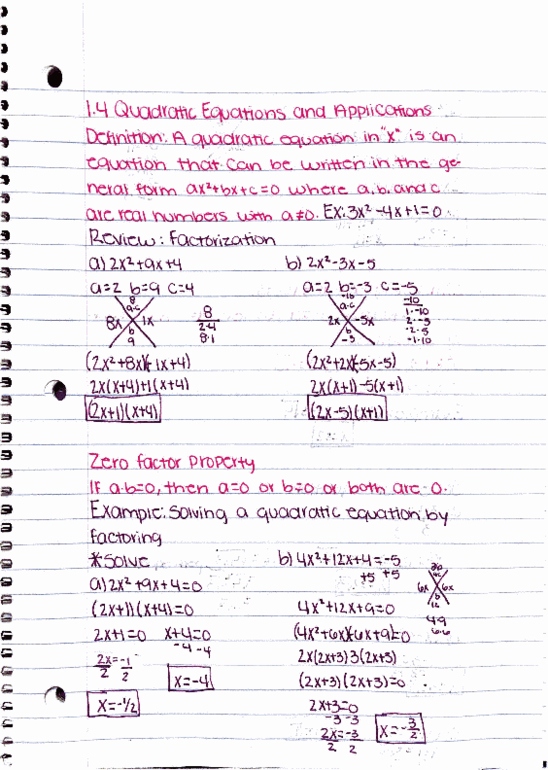 1.4 Quadratic Equations and Applications
Definition: A quadratic equation in "x" is an
equation that can be written in the ge-
neral form ax²+bx+c=0 where a, b, and c
are real numbers with a≠0. Ex: 3x² -4x+1=0
Review: Factorization
a) 2x²+9x+4
a=2 b=9 c=4
8
a·c
8x 1x
b
9
8
2·4
8·1
(2x²+8x)(+1x+4)
2x(x+4)+1(x+4)
(2x+1)(x+4)
b) 2x²-3x-5
a=2 b=-3 c=-5
-10
a·c
2x -5x
b
-3
-10
1·-10
2·-5
-1·10
(2x²+2x)(-5x-5)
2x(x+1)-5(x+1)
(2x-5)(x+1)
Zero factor property
If a·b=0, then a=0 or b=0 or both are 0.
Example: Solving a quadratic equation by
factoring
*Solve
a) 2x²+9x+4=0
(2x+1)(x+4)=0
2x+1=0 x+4=0
-4 -4
2x=-1
2 2
x=-4
x=-1/2
b) 4x²+12x+4=-5
+5 +5
36
6x 6x
b
12
6·6
4x²+12x+9=0
(4x²+6x)(6x+9)=0
2x(2x+3)3(2x+3)
(2x+3)(2x+3)=0
2x+3=0
-3 -3
2x=-3
2 2
x=-3/2